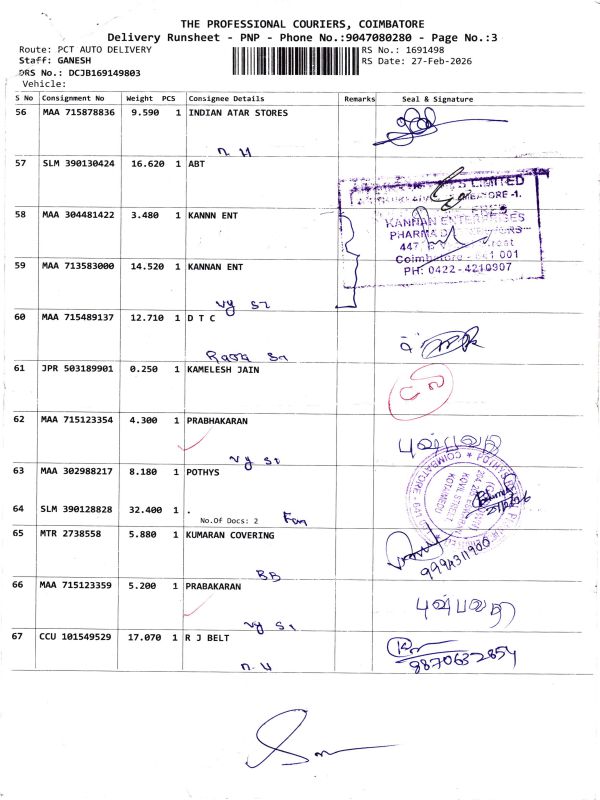 THE PROFESSIONAL COURIERS, COIMBATORE
Delivery Runsheet - PNP - Phone No.:9047080280 - Page No.:3
Route: PCT AUTO DELIVERY RS No.: 1691498
Staff: GANESH RS Date: 27-Feb-2026
DRS No.: DCJB169149803
Vehicle:
S No Consignment No Weight PCS Consignee Details Remarks Seal & Signature
56 MAA 715878836 9.590 1 INDIAN ATAR STORES
n. H
57 SLM 390130424 16.620 1 ABT
LIMITED
58 MAA 304481422 3.480 1 KANNN ENT
KANNAN ENTERPRISES
PHARMA
447
Coimbatore - 641 001
PH: 0422 - 4210907
59 MAA 713583000 14.520 1 KANNAN ENT
vy sr
60 MAA 715489137 12.710 1 D T C
Raja Sn
61 JPR 503189901 0.250 1 KAMELESH JAIN
62 MAA 715123354 4.300 1 PRABHAKARAN
புஷ்பவதி
vy sr
63 MAA 302988217 8.180 1 POTHYS
COIMBATORE
64 SLM 390128828 32.400 1 .
No.Of Docs: 2
65 MTR 2738558 5.880 1 KUMARAN COVERING
9994311900
BB
66 MAA 715123359 5.200 1 PRABAKARAN
புஷ்பவதி
vy sr
67 CCU 101549529 17.070 1 R J BELT
n. H
9870632854